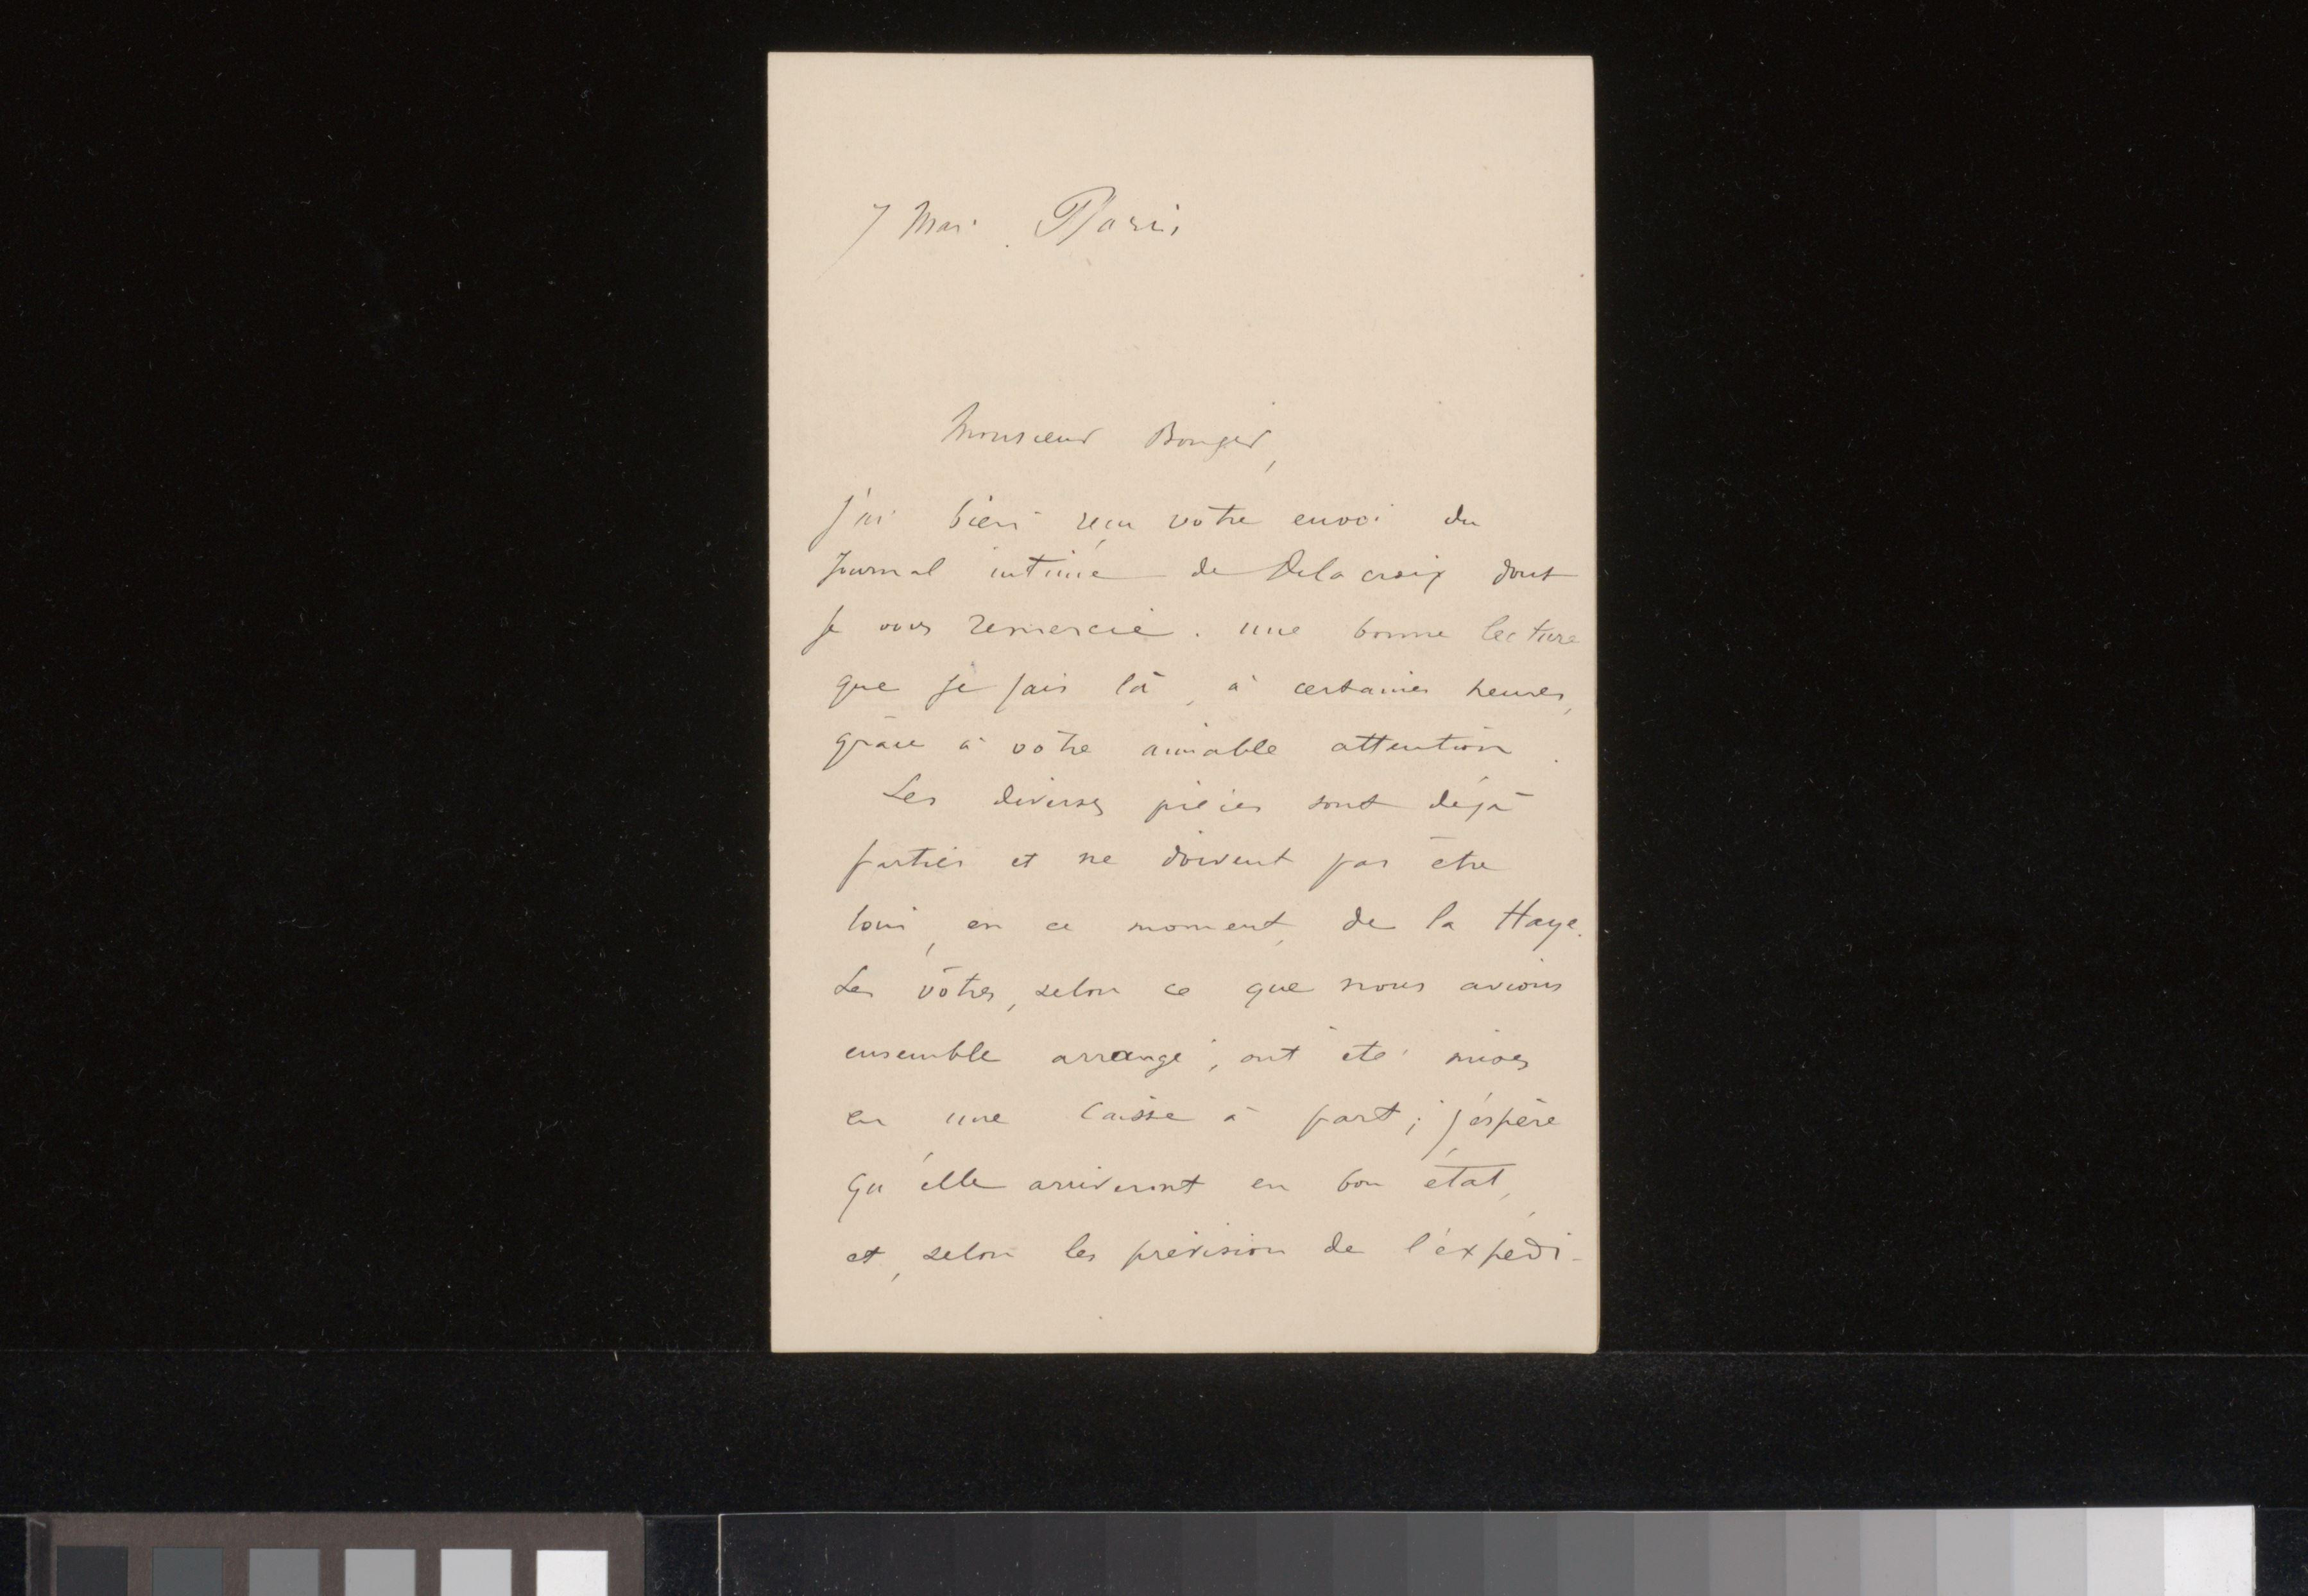 7 Mai. Paris,
Monsieur Bonger,
j'ai bien reçu votre envoi du
Journal intime de Delacroix dont
je vous remercie. une bonne lecture
que je fais là, à certaines heures,
grâce à vôtre aimable attention.
Les diverses pièces sont déjà
parties et ne doivent pas être
loin, en ce moment, de la Haye.
Les vôtres, selon ce que nous avions
ensemble arrangé, ont été mises
en une caisse à part; j'espère
qu'elle arriveront en bon état,
et, selon les prévision de l'éxpédi-